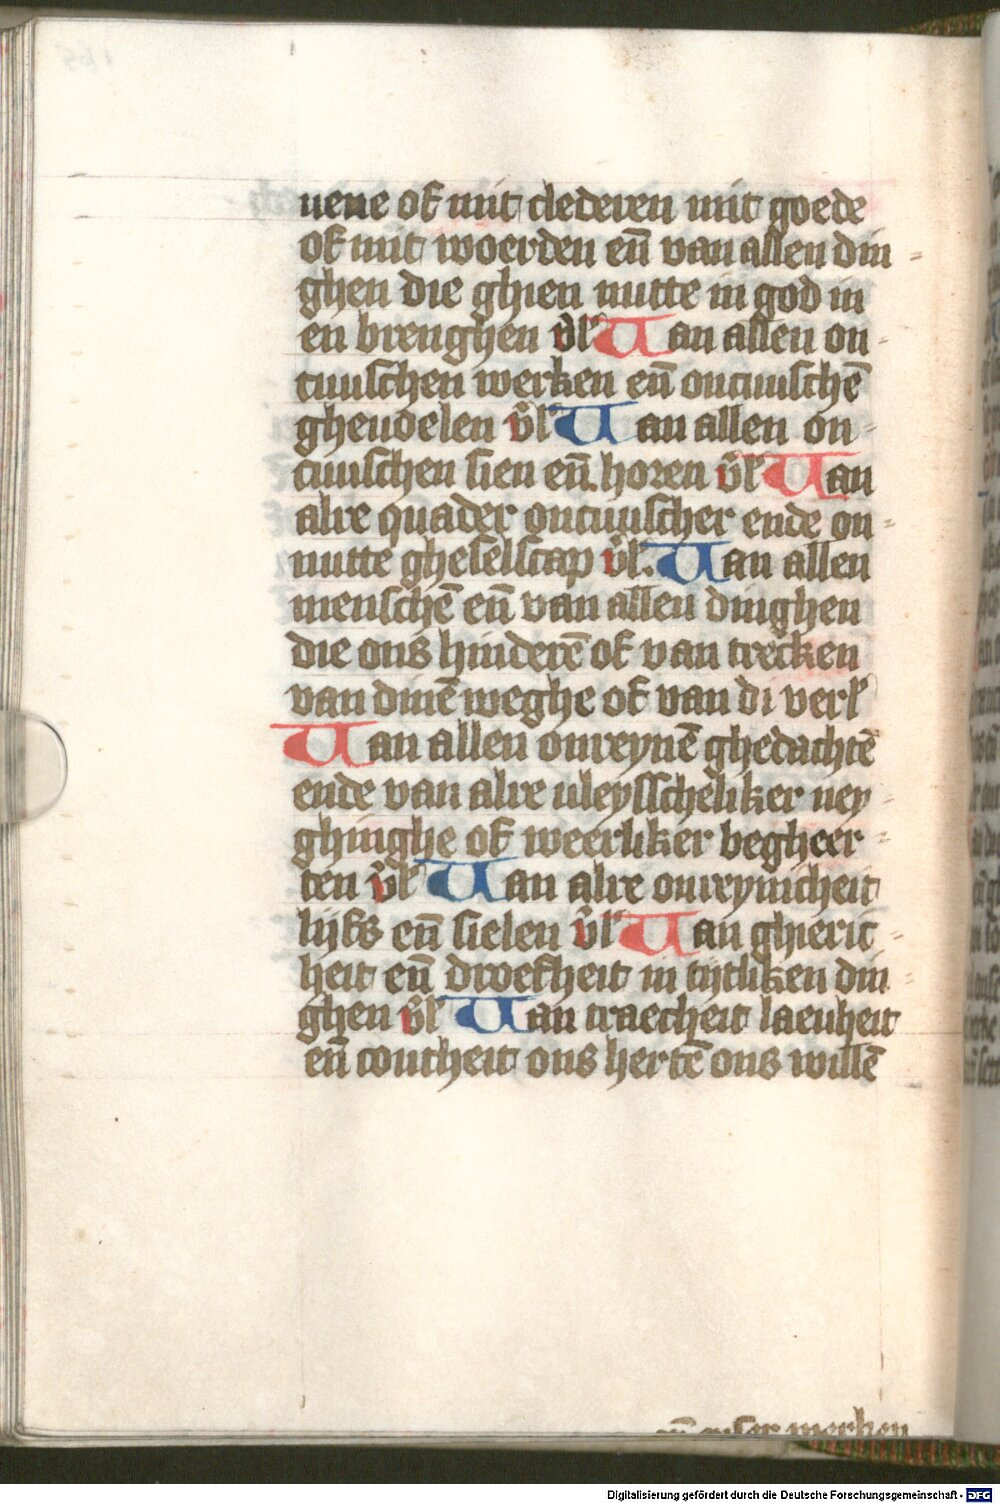 uene of mit clederen mit goede
of mit woerden en̄ van allen din
ghen die ghien nutte in god in
en brenghen v̄l Uan allen on
cuuschen werken en̄ oncuuschē
gheuoelen v̄l Uan allen on
cuuschen sien en̄ horen v̄l Uan
alre quader oncuuscher ende on
nutte gheselscap v̄l. Uan allen
menschē en̄ van allen dinghen
die ons hinderē of van trecken
van dinē weghe of van di verl
Uan allen onreynē ghedachtē
ende van alre vleysscheliker ney
ghinghe of weerliker begheer
ten v̄l Uan alre onreynicheit
lijfs en̄ sielen v̄l Uan ghieric
heit en̄ droefheit in tijtliken din
ghen v̄l Uan traecheit laeuheit
en̄ coutheit ons hertē ons willē
en̄ onser merken
Digitalisierung gefördert durch die Deutsche Forschungsgemeinschaft - DFG